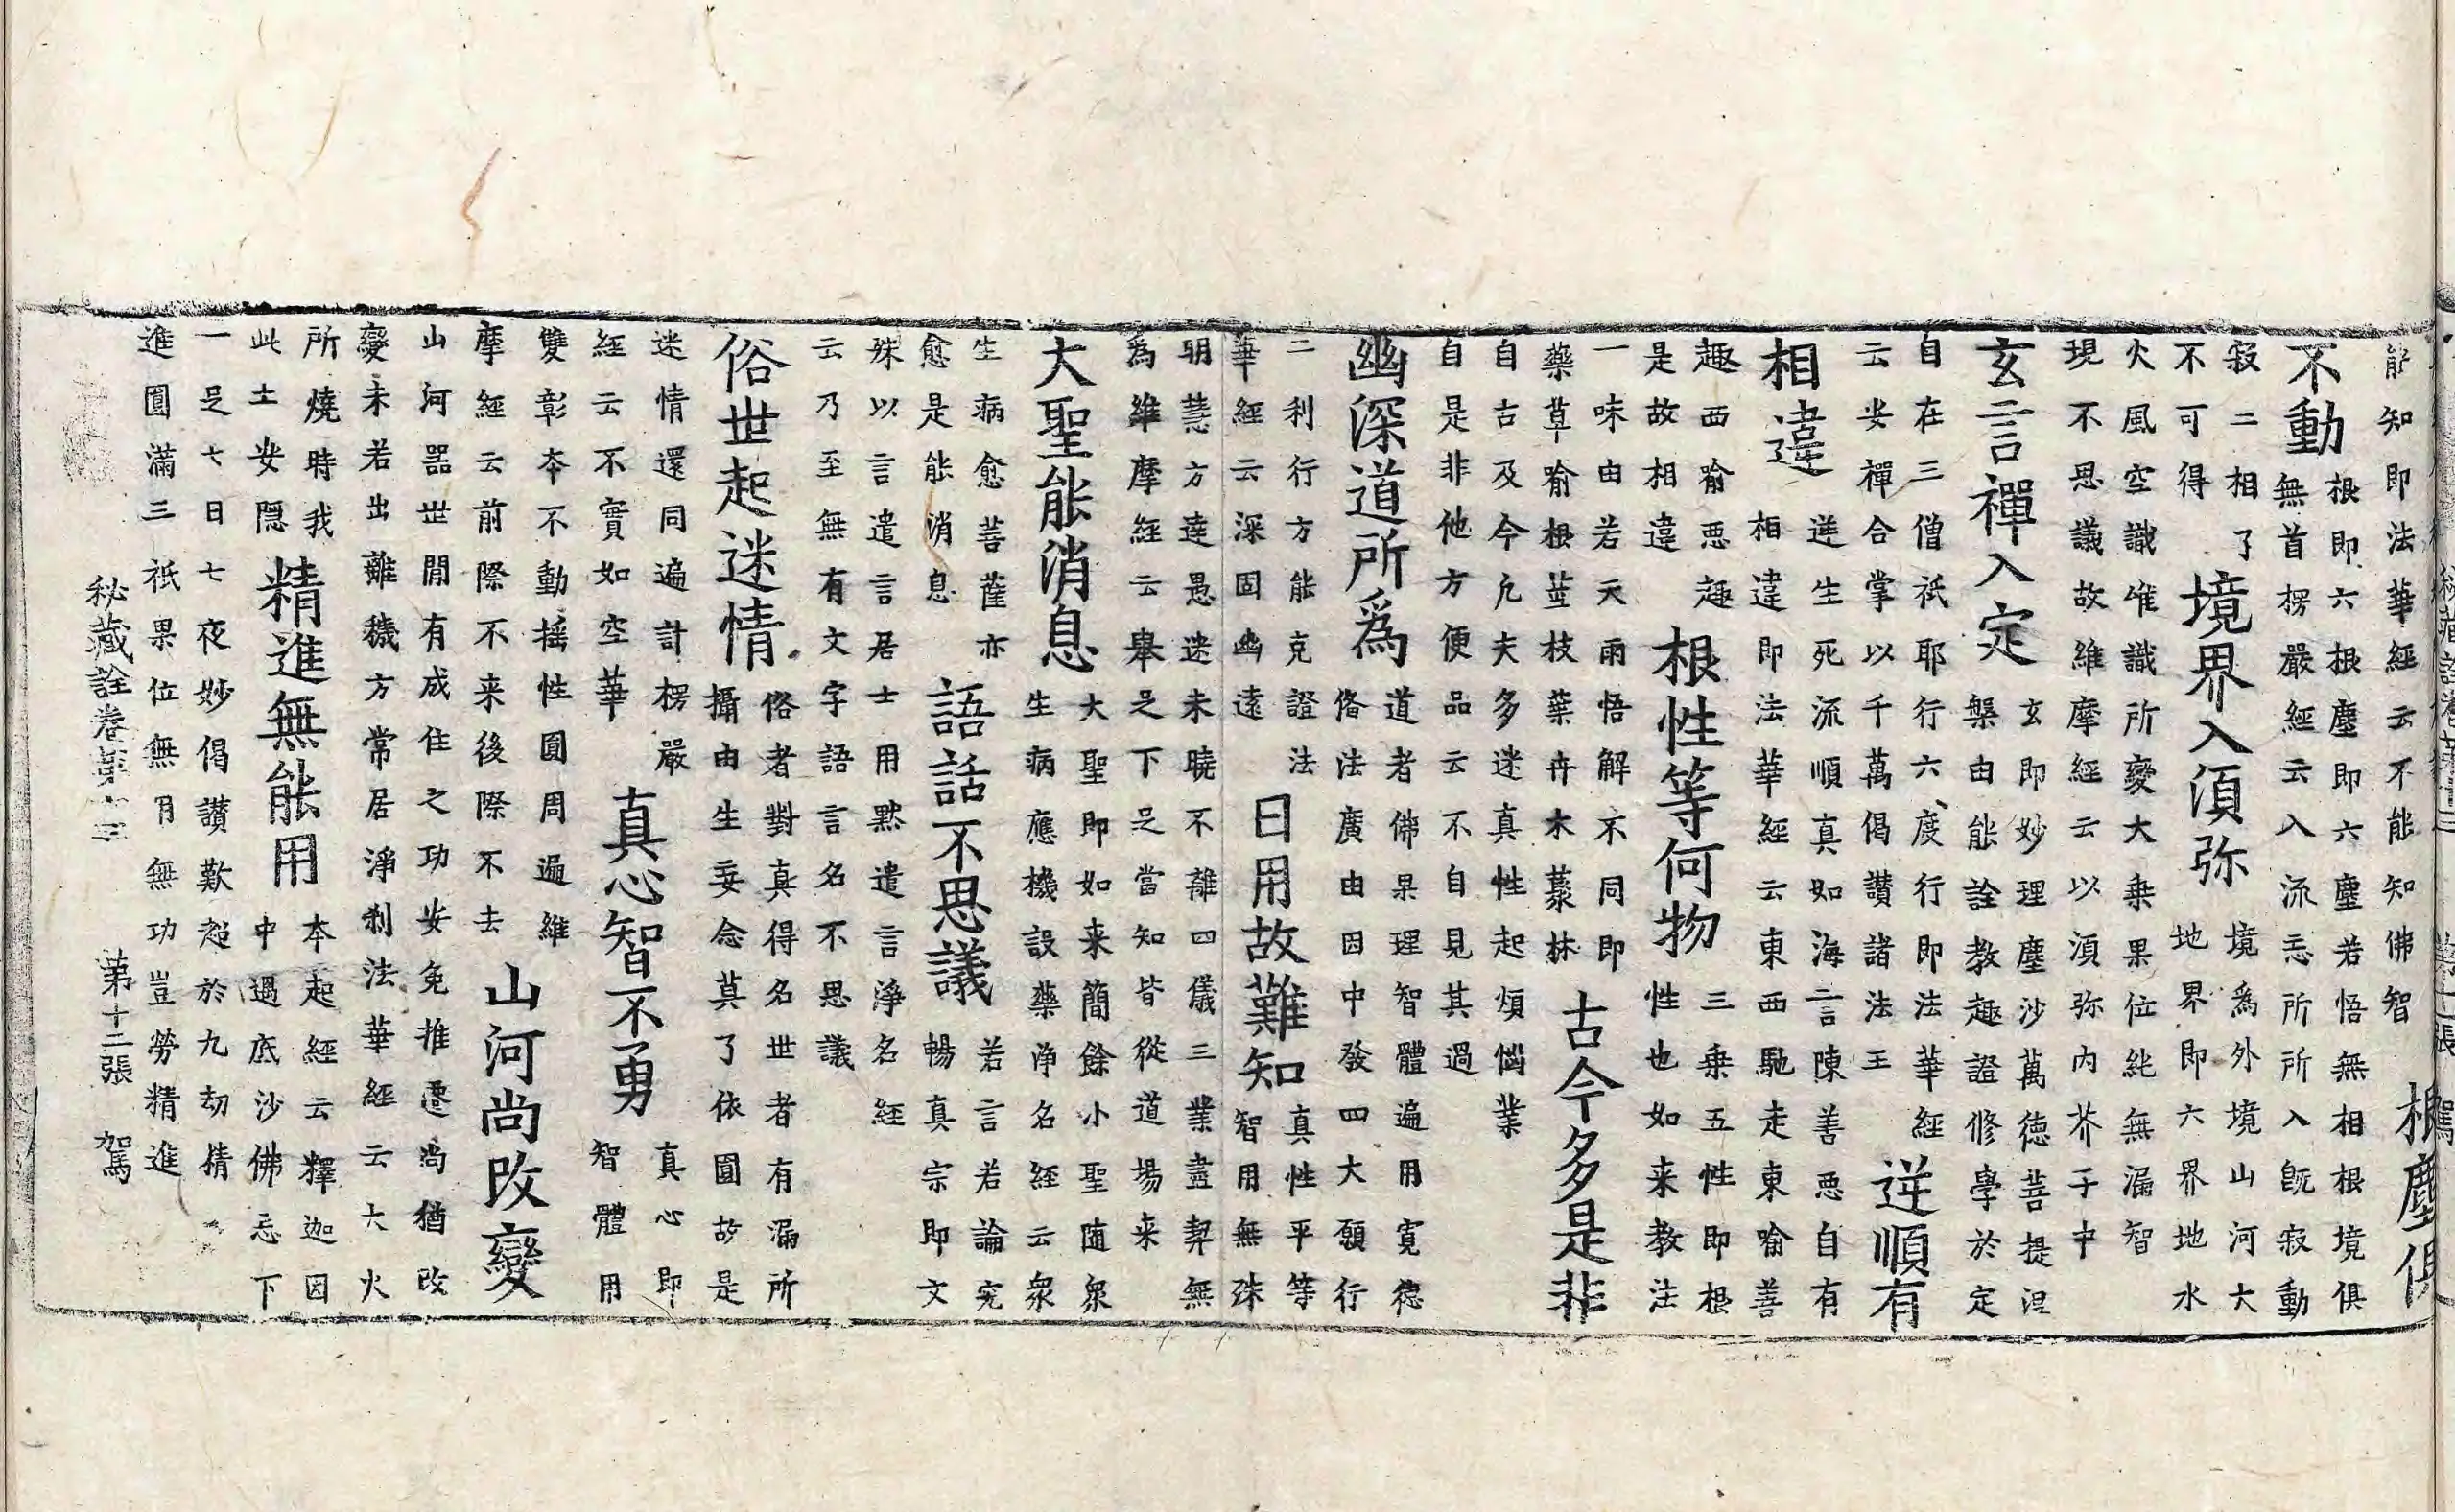 能知即法華經云不能知佛智
根塵俱
不動
根即六根塵即六塵若悟無相根境俱
無首楞嚴經云入流忘所所入既寂動
寂二相了
不可得
境界入須弥
境爲外境山河大
地界即六界地水
火風空識唯識所變大乗果位純無漏智
現不思議故維摩經云以須弥内芥子中
玄言禪入定
玄即妙理塵沙萬徳菩提涅
槃由能詮教趣證修學於定
自在三僧祇耶行六度行即法華經
云安禪合掌以千萬偈讃諸法王
逆順有
相違
逆生死流順真如海言陳善悪自有
相違即法華經云東西馳走東喻善
趣西喻悪趣
是故相違
根性等何物
三乗五性即根
性也如来教法
一味由若天雨悟解不同即
藥草喻根莖枝葉卉木藂林
古今多是非
自古及今凢夫多迷真性起煩惱業
自是非他方便品云不自見其過
幽深道所爲
道者佛果理智體遍用寛徳
俻法廣由因中發四大願行
二利行方能克證法
華經云深固幽遠
日用故難知
真性平等
智用無殊
明慧方達愚迷未曉不離四儀三業盡契無
為維摩經云舉足下足當知皆從道場来
大聖能消息
大聖即如来簡餘小聖随衆
生病應機設藥浄名經云衆
生病愈菩薩亦
愈是能消息
語話不思議
若言若論究
暢真宗即文
殊以言遣言居士用黙遣言浄名經
云乃至無有文字語言名不思議
俗世起迷情
俗者對真得名世者有漏所
攝由生妄念莫了依圓故是
迷情還同遍計楞嚴
經云不實如空華
真心智不勇
真心即
智體用
雙彰夲不動揺性圓周遍維
摩經云前際不来後際不去
山河尚改變
山河器世間有成住之功安免推遷尚猶改
變未若出離穢方常居淨刹法華經云大火
所燒時我
此土安隠
精進無能用
本起經云釋迦因
中遇底沙佛忘下
一足七日七夜妙偈讃歎超於九劫精
進圓滿三祇果位無用無功豈勞精進
秘藏詮卷第十三 第十二張 駕